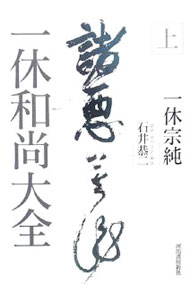 上
一休宗純
石井恭二
諸悪莫
一休和尚大全
河出書房新社